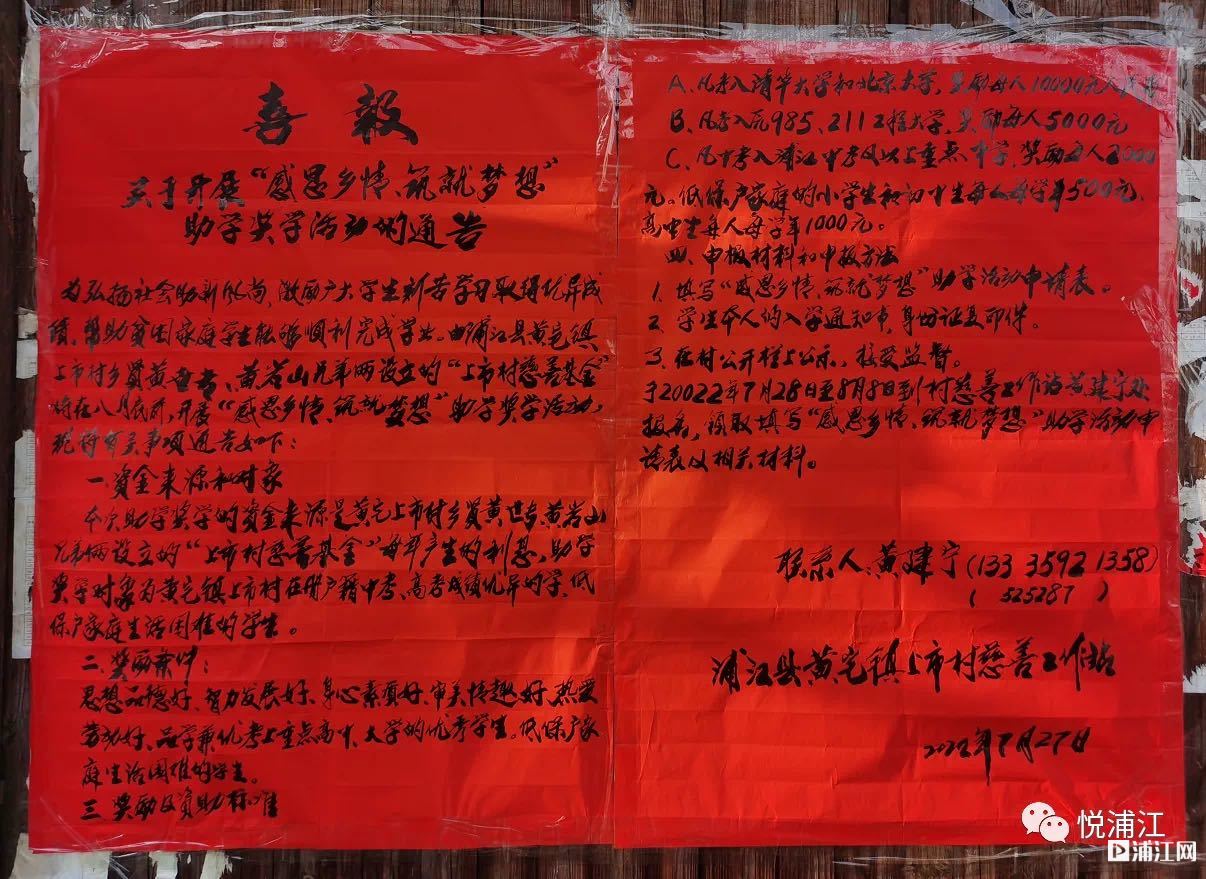 喜报
关于开展“感恩乡情、筑就梦想”
助学奖学活动的通告
为弘扬社会助新风尚，激励广大学生刻苦学习取得优异成
绩，帮助贫困家庭学生能够顺利完成学业。由浦江县黄宅镇
上市村乡贤黄世专、黄岩山兄弟俩设立的“上市村慈善基金”
将在八月底前，开展“感恩乡情、筑就梦想”助学奖学活动，
现将有关事项通告如下：
一、资金来源和对象
本次助学奖学的资金来源是黄宅上市村乡贤黄世专、黄岩山
兄弟俩设立的“上市村慈善基金”每年产生的利息，助学
奖学对象为黄宅镇上市村在册户籍中考、高考成绩优异的学、低
保户家庭生活困难的学生。
二、奖励条件：
思想品德好、智力发展好、身心素质好、审美情趣好、热爱
劳动好、品学兼优考上重点高中、大学的优秀学生。低保户家
庭生活困难的学生。
三、奖励及资助标准
A、凡考入清华大学和北京大学，奖励每人10000元人民币
B、凡考入区985、211工程大学，奖励每人5000元
C、凡中考入浦江中考及以上重点中学，奖励每人2000
元。低保户家庭的小学生和初中生每人每学年500元、
高中生每人每学年1000元。
四、申报材料和申报方法
1、填写“感恩乡情、筑就梦想”助学活动申请表。
2、学生本人的入学通知书，身份证复印件。
3、在村公开栏上公示，接受监督。
于20022年7月28日至8月8日到村慈善工作站黄建宁处
报名，领取填写“感恩乡情、筑就梦想”助学活动申
请表及相关材料。
联系人：黄建宁（133 3592 1358）
（ 525287 ）
浦江县黄宅镇上市村慈善工作站
2022年7月27日
悦浦江
浦江网